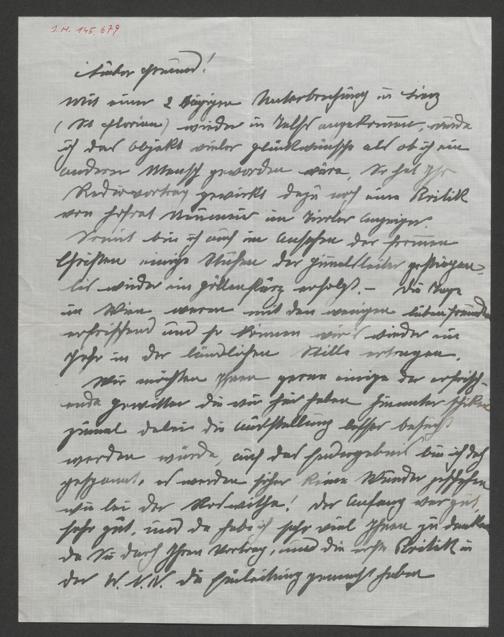 I.N. 145.679
Lieber Freund!
Mit einer 2 tägigen Unterbrechung in Linz
(St Florian) wieder in Telfs angekommen, wurde
ich das Objekt vieler Glückwünsche als ob ich ein
anderer Mensch geworden wäre. So hat Ihr
Radiovortrag gewirkt dazu noch eine Kritik
von Hofrat im Tiroler Anzeiger
Somit bin ich auch im Ansehen der frommen
Christen einige Stufen der Himmelsleiter gestiegen
bis wieder ein Höllensturz erfolgt. – Die Tage
in Wien waren mit den wenigen lieben Freunden
erfrischend und so können wir's wieder ein
Jahr in der ländlichen Stille ertragen.
Wir möchten Ihnen gerne einige der erfrisch-
ende Gewitter die wir hier haben hinunter schicken
zumal dabei die Ausstellung besser besucht
werden würde, auch das Endergebnis bin ich doch
gespannt, es werden sicher keine Wunder geschehen
wie bei der Roswitha! Der Anfang war gut
sehr gut, und da habe ich sehr viel Ihnen zu danken
da Sie durch Ihren Vortrag, und die erste Kritik in
der W.N.N. die Einleitung gemacht haben